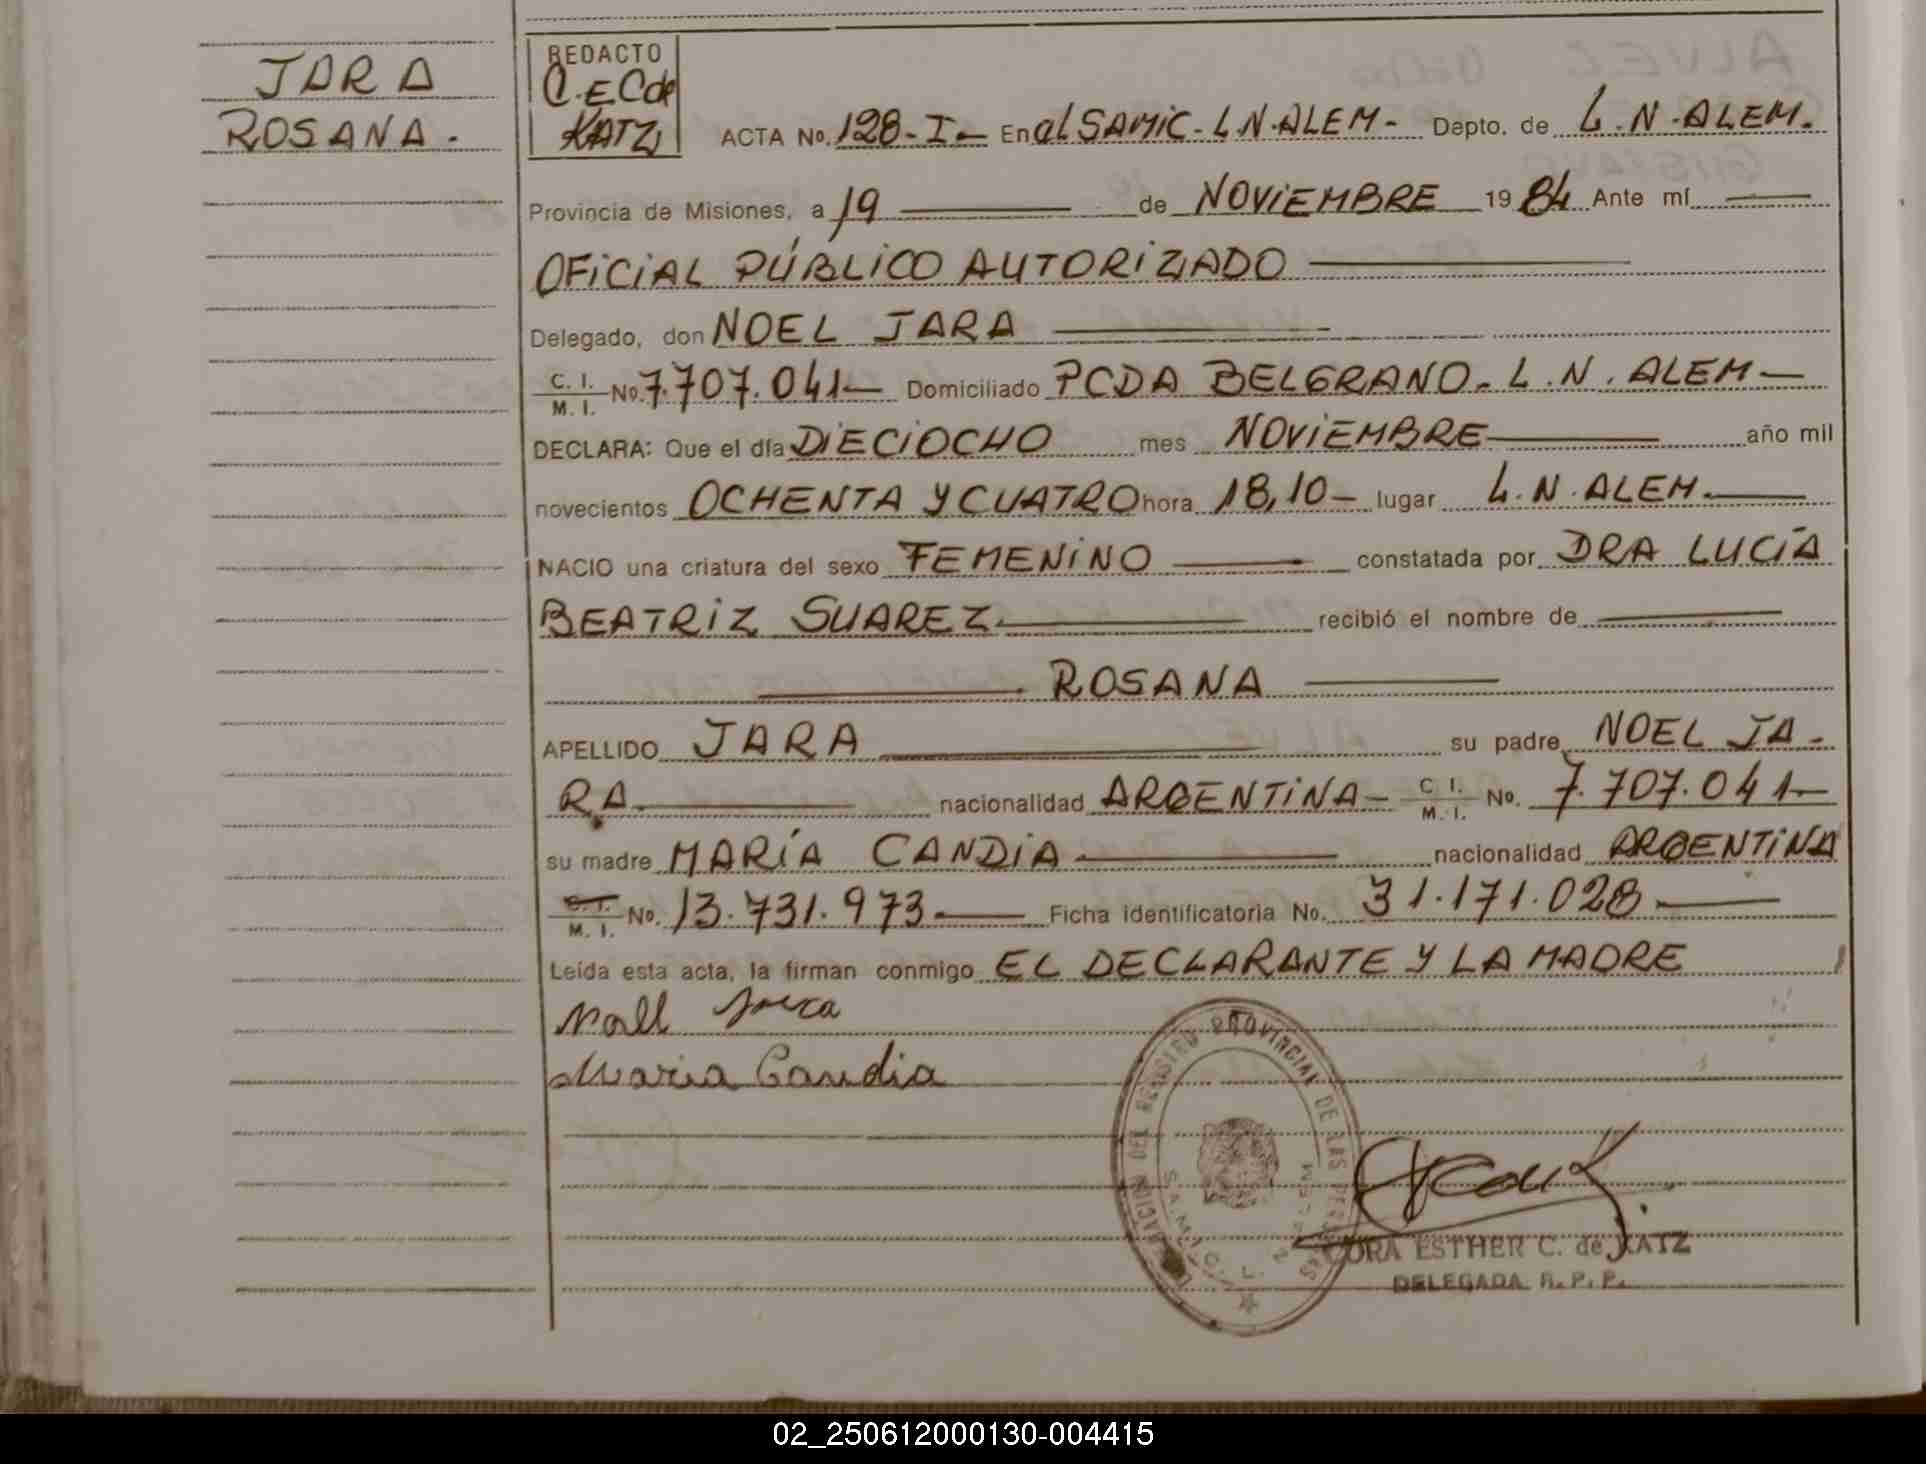 JARA
ROSANA.
REDACTO
C.E.C de
KATZ
ACTA No. 128-I- En el SAMIC. L.N.ALEM- Depto. de L.N.ALEM.
Provincia de Misiones, a 19 de NOVIEMBRE 1984 Ante mí
OFICIAL PÚBLICO AUTORIZADO
Delegado, don NOEL JARA
C. I. M. I. No. 7.707.041- Domiciliado PCDA BELGRANO. L.N. ALEM-
DECLARA: Que el día DIECIOCHO mes NOVIEMBRE año mil
novecientos OCHENTA Y CUATRO hora 18,10- lugar L.N.ALEM.
NACIO una criatura del sexo FEMENINO constatada por DRA LUCÍA
BEATRIZ SUAREZ. recibió el nombre de
ROSANA
APELLIDO JARA su padre NOEL JA-
RA. nacionalidad ARGENTINA- C. I. M. I. No. 7.707.041-
su madre MARÍA CANDIA nacionalidad ARGENTINA
C. I. M. I. No. 13.731.973. Ficha identificatoria No. 31.171.028
Leída esta acta, la firman conmigo EL DECLARANTE Y LA MADRE
Noell Jara
Maria Candia
DEL REGISTRO PROVINCIAL DE LAS PERSONAS
S.A.M.I.C. L. N. ALEM
CORA ESTHER C. de KATZ
DELEGADA R. P. P.
02_250612000130-004415